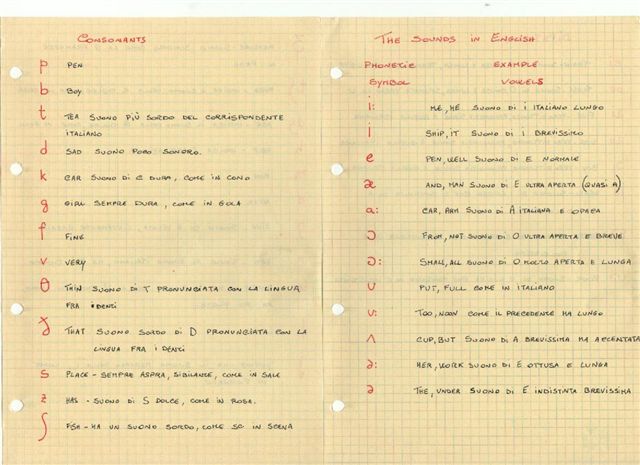 CONSONANTS
p PEN
b BOY
t TEA SUONO PIÙ SORDO DEL CORRISPONDENTE
ITALIANO
d SAD SUONO POCO SONORO.
k CAR SUONO DI C DURA, COME IN CONO
g GIRL SEMPRE DURA, COME IN GOLA
f FINE
v VERY
θ THIN SUONO DI T PRONUNCIATA CON LA LINGUA
FRA I DENTI
ð THAT SUONO SORDO DI D PRONUNCIATA CON LA
LINGUA FRA I DENTI
s PLACE - SEMPRE ASPRA, SIBILANTE, COME IN SALE
z HAS - SUONO DI S DOLCE, COME IN ROSA.
ʃ FISH - HA UN SUONO SORDO, COME SC IN SCENA
THE SOUNDS IN ENGLISH
PHONETIC EXAMPLE
SYMBOL VOWELS
i: ME, HE SUONO DI I ITALIANO LUNGO
i SHIP, IT SUONO DI I BREVISSIMO
e PEN, WELL SUONO DI E NORMALE
æ AND, MAN SUONO DI E ULTRA APERTA (QUASI A)
a: CAR, ARM SUONO DI A ITALIANA E
ɔ FROM, NOT SUONO DI O ULTRA APERTA E BREVE
ɔ: SMALL, ALL SUONO DI O MOLTO APERTA E LUNGA
u PUT, FULL COME IN ITALIANO
u: TOO, NOON COME IL PRECEDENTE MA LUNGO
ʌ CUP, BUT SUONO DI A BREVISSIMA MA ACCENTATA
ə: HER, WORK SUONO DI E OTTUSA E LUNGA
ə THE, UNDER SUONO DI E INDISTINTA BREVISSIMA